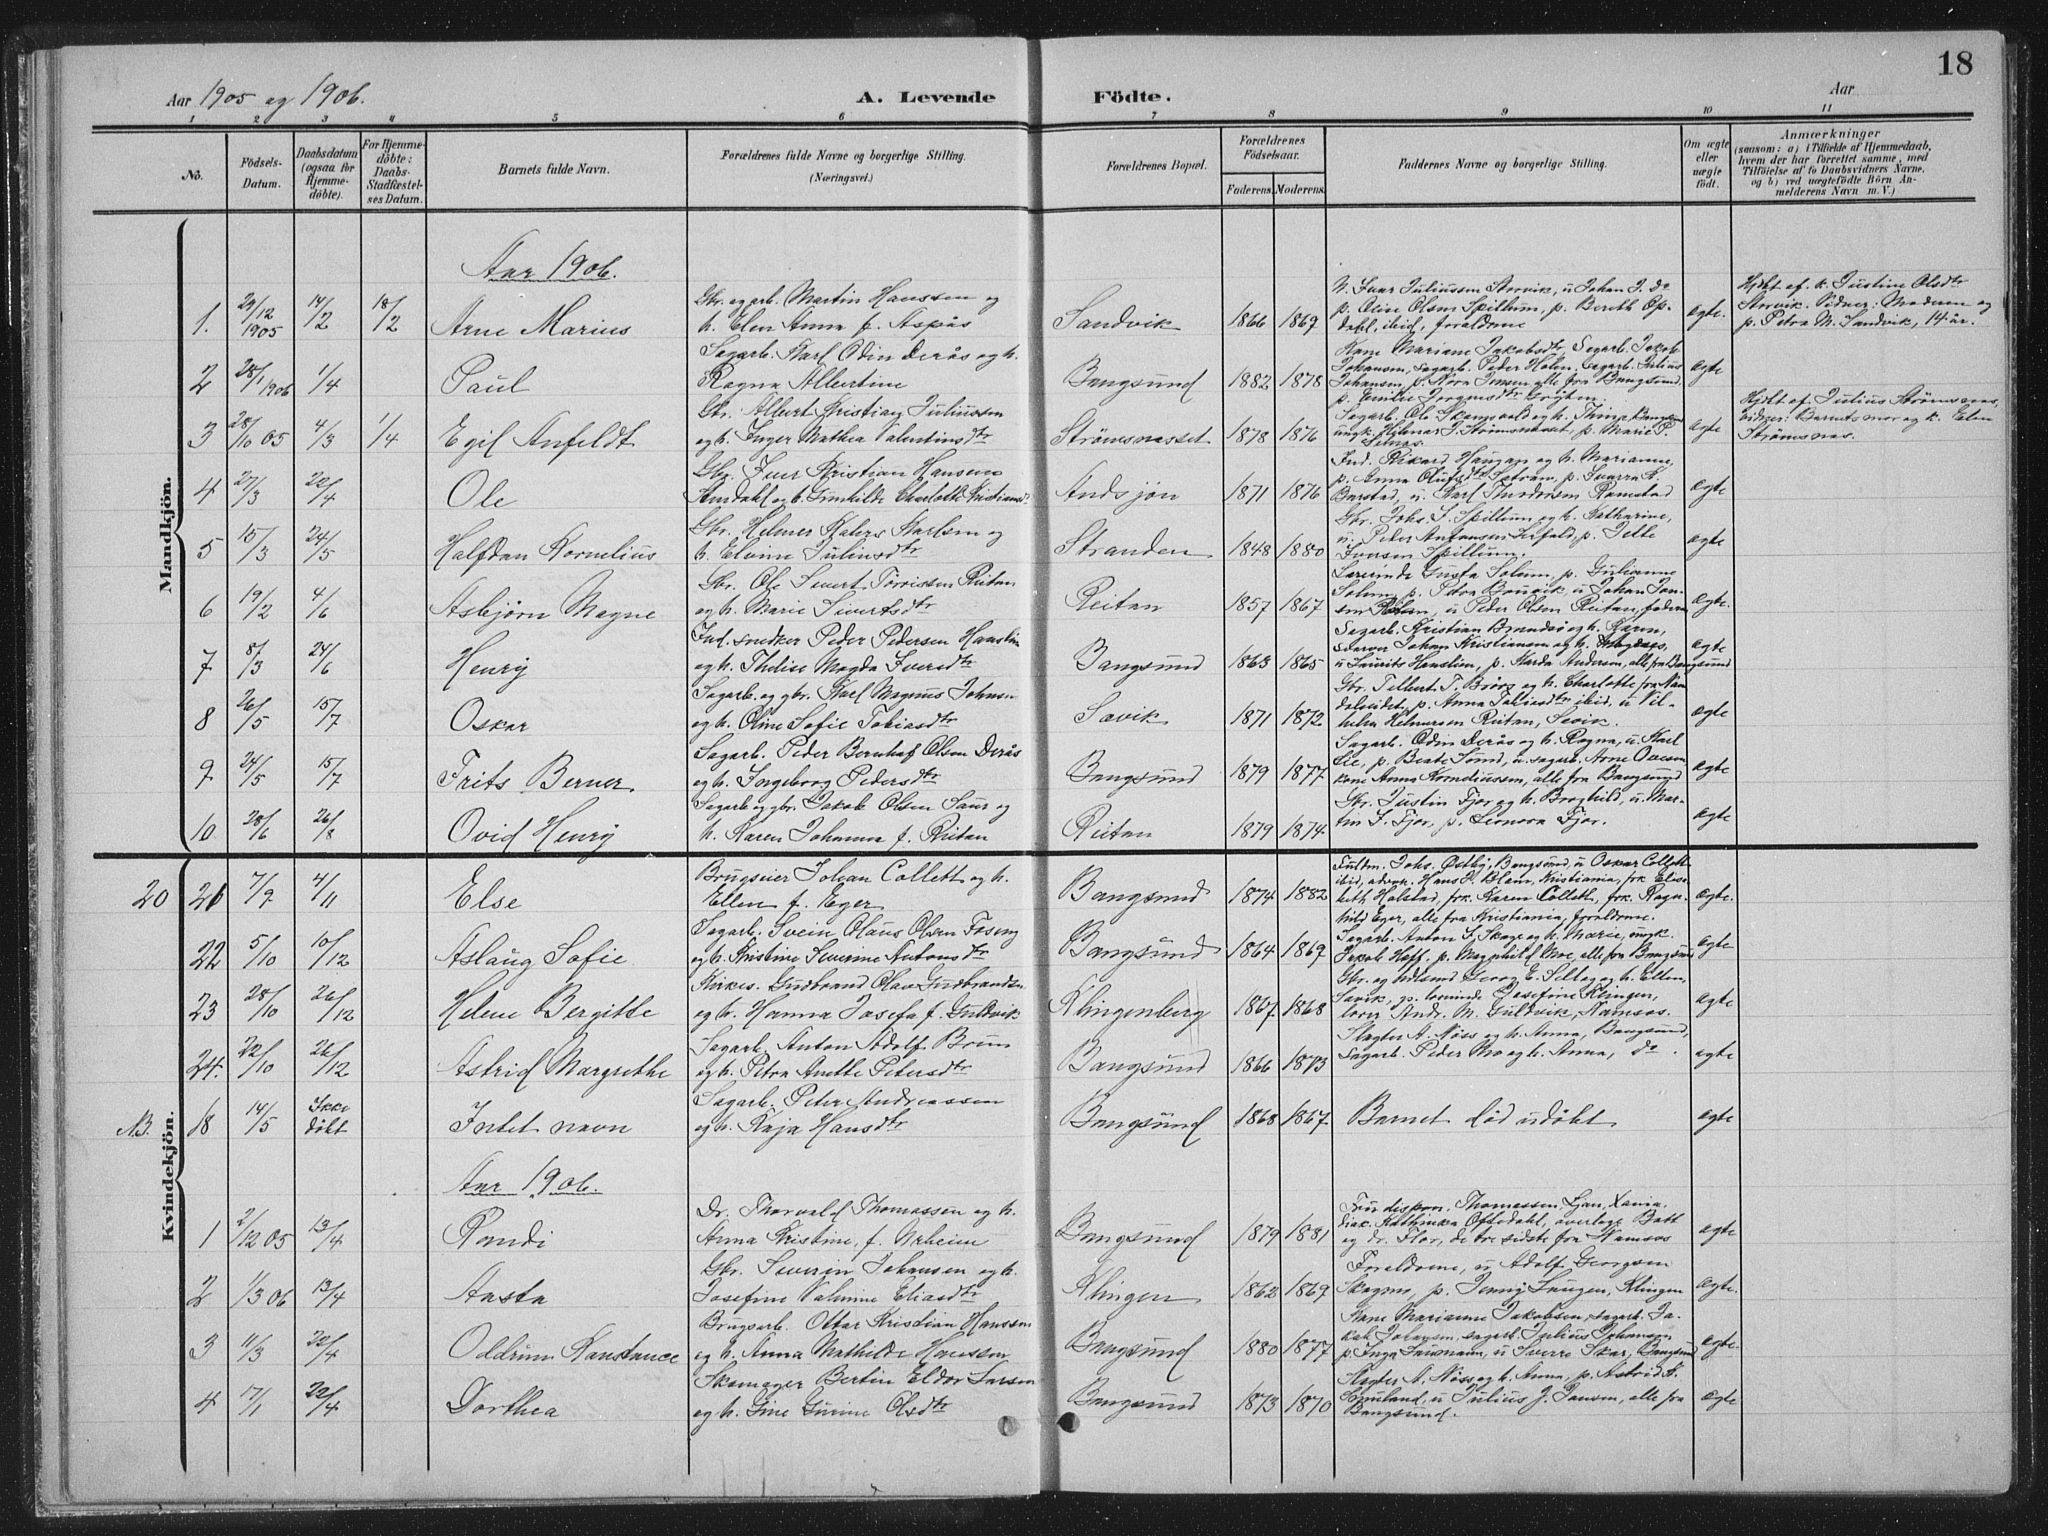 18
Aar 1905 og 1906.
A. Levende Födte.
Aar
1 2 3 4 5 6 7 8 9 10 11
No.
Födsels-Datum.
Daabsdatum (ogsaa for Hjemmedöbte).
For Hjemmedöbte: Daabs-Stadfæstelses Datum.
Barnets fulde Navn.
Forældrenes fulde Navne og borgerlige Stilling. (Næringsvei.)
Forældrenes Bopæl.
Forældrenes Födselsaar.
Faderens. Moderens.
Faddernes Navne og borgerlige Stilling.
Om ægte eller uægte födt.
Anmærkninger (saasom: a) i Tilfælde af Hjemmedaab, hvem der har forrettet samme, med Tilföielse af to Daabsvidners Navne, og b) ved uægtefödte Börn Anmelderens Navn m. V.)
Mandkjön.
Aar 1906.
1. 29/12 1905 14/2 18/2 Arne Marius
Gbr. og arb. Martin Hanssen og
h. Elen Anna f. Aspås
Sandvik 1866 1869
p. Oline Olsen Spillum, p. Bereth Op-
dahl, ibid, forældrene
ægte.
Hjdbt af k. Justine Olsdtr
Storvik. Vidner: Modren og
p. Petra M. Sandvik, 14 år.
2 28/1 1906 1/4 Paul
Sagarb. Karl Odin Derås og h.
Ragna Albertine
Bangsund 1882 1878
Kone Mariane Jakobsdtr, Sagarb. Jakob
Johansen, sagarb. Peder Holen, sagarb. Julius
Johansen, p. Nora Jensen alle fra Bangsund
ægte
3 28/10 05 4/3 1/4 Egil Anfeldt
Gbr. Albert Kristian Juliussen
og h. Inger Mathea Valentinsdtr
Strömsnasset 1878 1876
ungk. Helmer J. Strömsnasset, p. Marie P.
ægte
Hjdbt af Julius Strömsnas,
vidner: Barnets mor og k. Elen
Strömsnas.
4 27/3 22/4 Ole
Gbr. Iver Kristian Hansen
Andsjön 1871 1876
Ind. Rikard Haugan og h. Marianne,
Barstad, u. Karl Thodorsen Ramstad
ægte
5 15/3 24/5 Halfdan Kornelius
Gbr. Helmer Peters Karlsen og
h. Elvine Juliusdtr
Stranden 1848 1880
Gbr. Johs. S. Spillum og h. Katharine,
Iversen Spillum.
ægte
6 19/2 4/6 Asbjörn Magne
Gbr. Ole Sivert Törrissen Reitan
og h. Marie Sivertsdtr
Reitan 1857 1867
Lærerinde Gusta Solum, p. Gulianne
Solum, p. Petra Bruvik, u. Johan Jen-
sen Holen, u. Peder Olsen Reitan, faderen
ægte.
7 8/3 24/6 Henry
Ind. snedker Peder Pedersen Hanslin
og h. Thelise Magda Iversdtr
Bangsund 1863 1865
Sagarb. Kristian Brandsö og h. Karen,
u. Laurits Hanslien, p. Karda Andersen, alle fra Bangsund
ægte
8 26/5 15/7 Oskar
Sagarb. og gbr. Karl Magnus Johnsen
og h. Oline Sofie Tobiasdtr
Savik 1871 1872
helm Helmersen Reitan, Sevik.
ægte
9 24/5 15/7 Frits Berner
Sagarb. Peder Bernhof Olsen Derås
og h. Ingeborg Pedersdtr
Bangsund 1879 1877
Sagarb. Odin Derås og h. Ragna, u. Karl
Lie, p. Beate Lund, u. sagarb. Arne Ovesen
kone Anna Korneliussen, alle fra Bangsund
ægte
10 28/6 26/8 Ovid Henry
Sagarb og gbr. Jakob Olsen Saur og
h. Karen Johanna f. Reitan
Reitan 1879 1874
Gbr. Justin Fjær og h. Broghild, u. Mar-
tin F. Fjær, p. Leonora Fjær.
ægte
20
Kvindekjön.
21 7/9 4/11 Else
Brugseier Johan Collett og h.
Ellen f. Eger
Bangsund 1874 1882
Fuldm. Johs. Østby, Bangsund, u. Oskar Collett
ibid, advok. Hans P. Blom, Kristiania, frk Elisa-
beth Holstad, frk. Karen Collett, frk. Ragn-
hild Eger, alle fra Kristiania, forældrene.
ægte.
22 5/10 10/12 Aslaug Sofie
Sagarb. Svein Olaus Olsen Fosing
og h. Kristine Severine Antonsdtr
Bangsund 1864 1869
Sagarb. Anton S. Skage og h. Marie, ungk.
Jakob Hoff, p. Magnhild Moe, alle fra Bangsund
ægte
23 28/10 26/12 Helene Bergitte
Kirkes. Gudbrand Olaus Gudbrandsen
og h. Hanna Josefa f. Guldvik
Klingenberg 1867 1868
Savik, p. lærerinde Josefine Klingen,
Andr. M. Guldvik, Namsos.
ægte
24. 22/10 26/12 Astrid Margrethe
Sagarb. Anton Adolf Bruun
og h. Petra Anette Petersdtr
Bangsund 1866 1873
Slagter A. Näss og h. Anna, Bangsund,
Sagarb. Peder Mo og h. Anna, do.
ægte
NB. 18 14/5 Ikke döbt Intet navn
Sagarb. Peter Andreassen
og h. Kaja Hansdtr
Bangsund 1868 1867
Barnet död udöbt
ægte
Aar 1906.
1 2/12 05 13/4 Randi
Dr. Thorvald Thomassen og h.
Anna Kristine, f. Arheim
Bangsund 1879 1881
diak. Kathinka Oftedahl, overlæge Bott
og dr. Flor, de tre sidste fra Namsos
ægte
2 1/3 06 13/4 Aasta
Gbr. Severin Johansen og h.
Josefine Valmine Eliasdtr
Klingen 1862 1869
Forældrene, u. Adolf Georgsen
Skagmo, p. Jenny Laugen, Klingen
ægte.
3 11/3 22/4 Oddrun Konstance
Brugsarb. Ottar Kristian Hanssen
og h. Anna Mathilde Hanssen
Bangsund 1880 1877
Kone Marianne Jakobsen, sagarb. Ja-
kob Johansen, sagarb. Julius Johansen
p. Inga Lausmann, u. Sverre Skar, Bangsund
ægte.
4 17/1 22/4 Dorthea
Skomager Bertin Eldor Larsen
og h. Gine Gurine Olsdtr
Bangsund 1873 1870
Slagter A. Näss og h. Anna, p. Astrid A.
Smuland, u. Julius J. Jansen, alle fra
Bangsund.
ægte